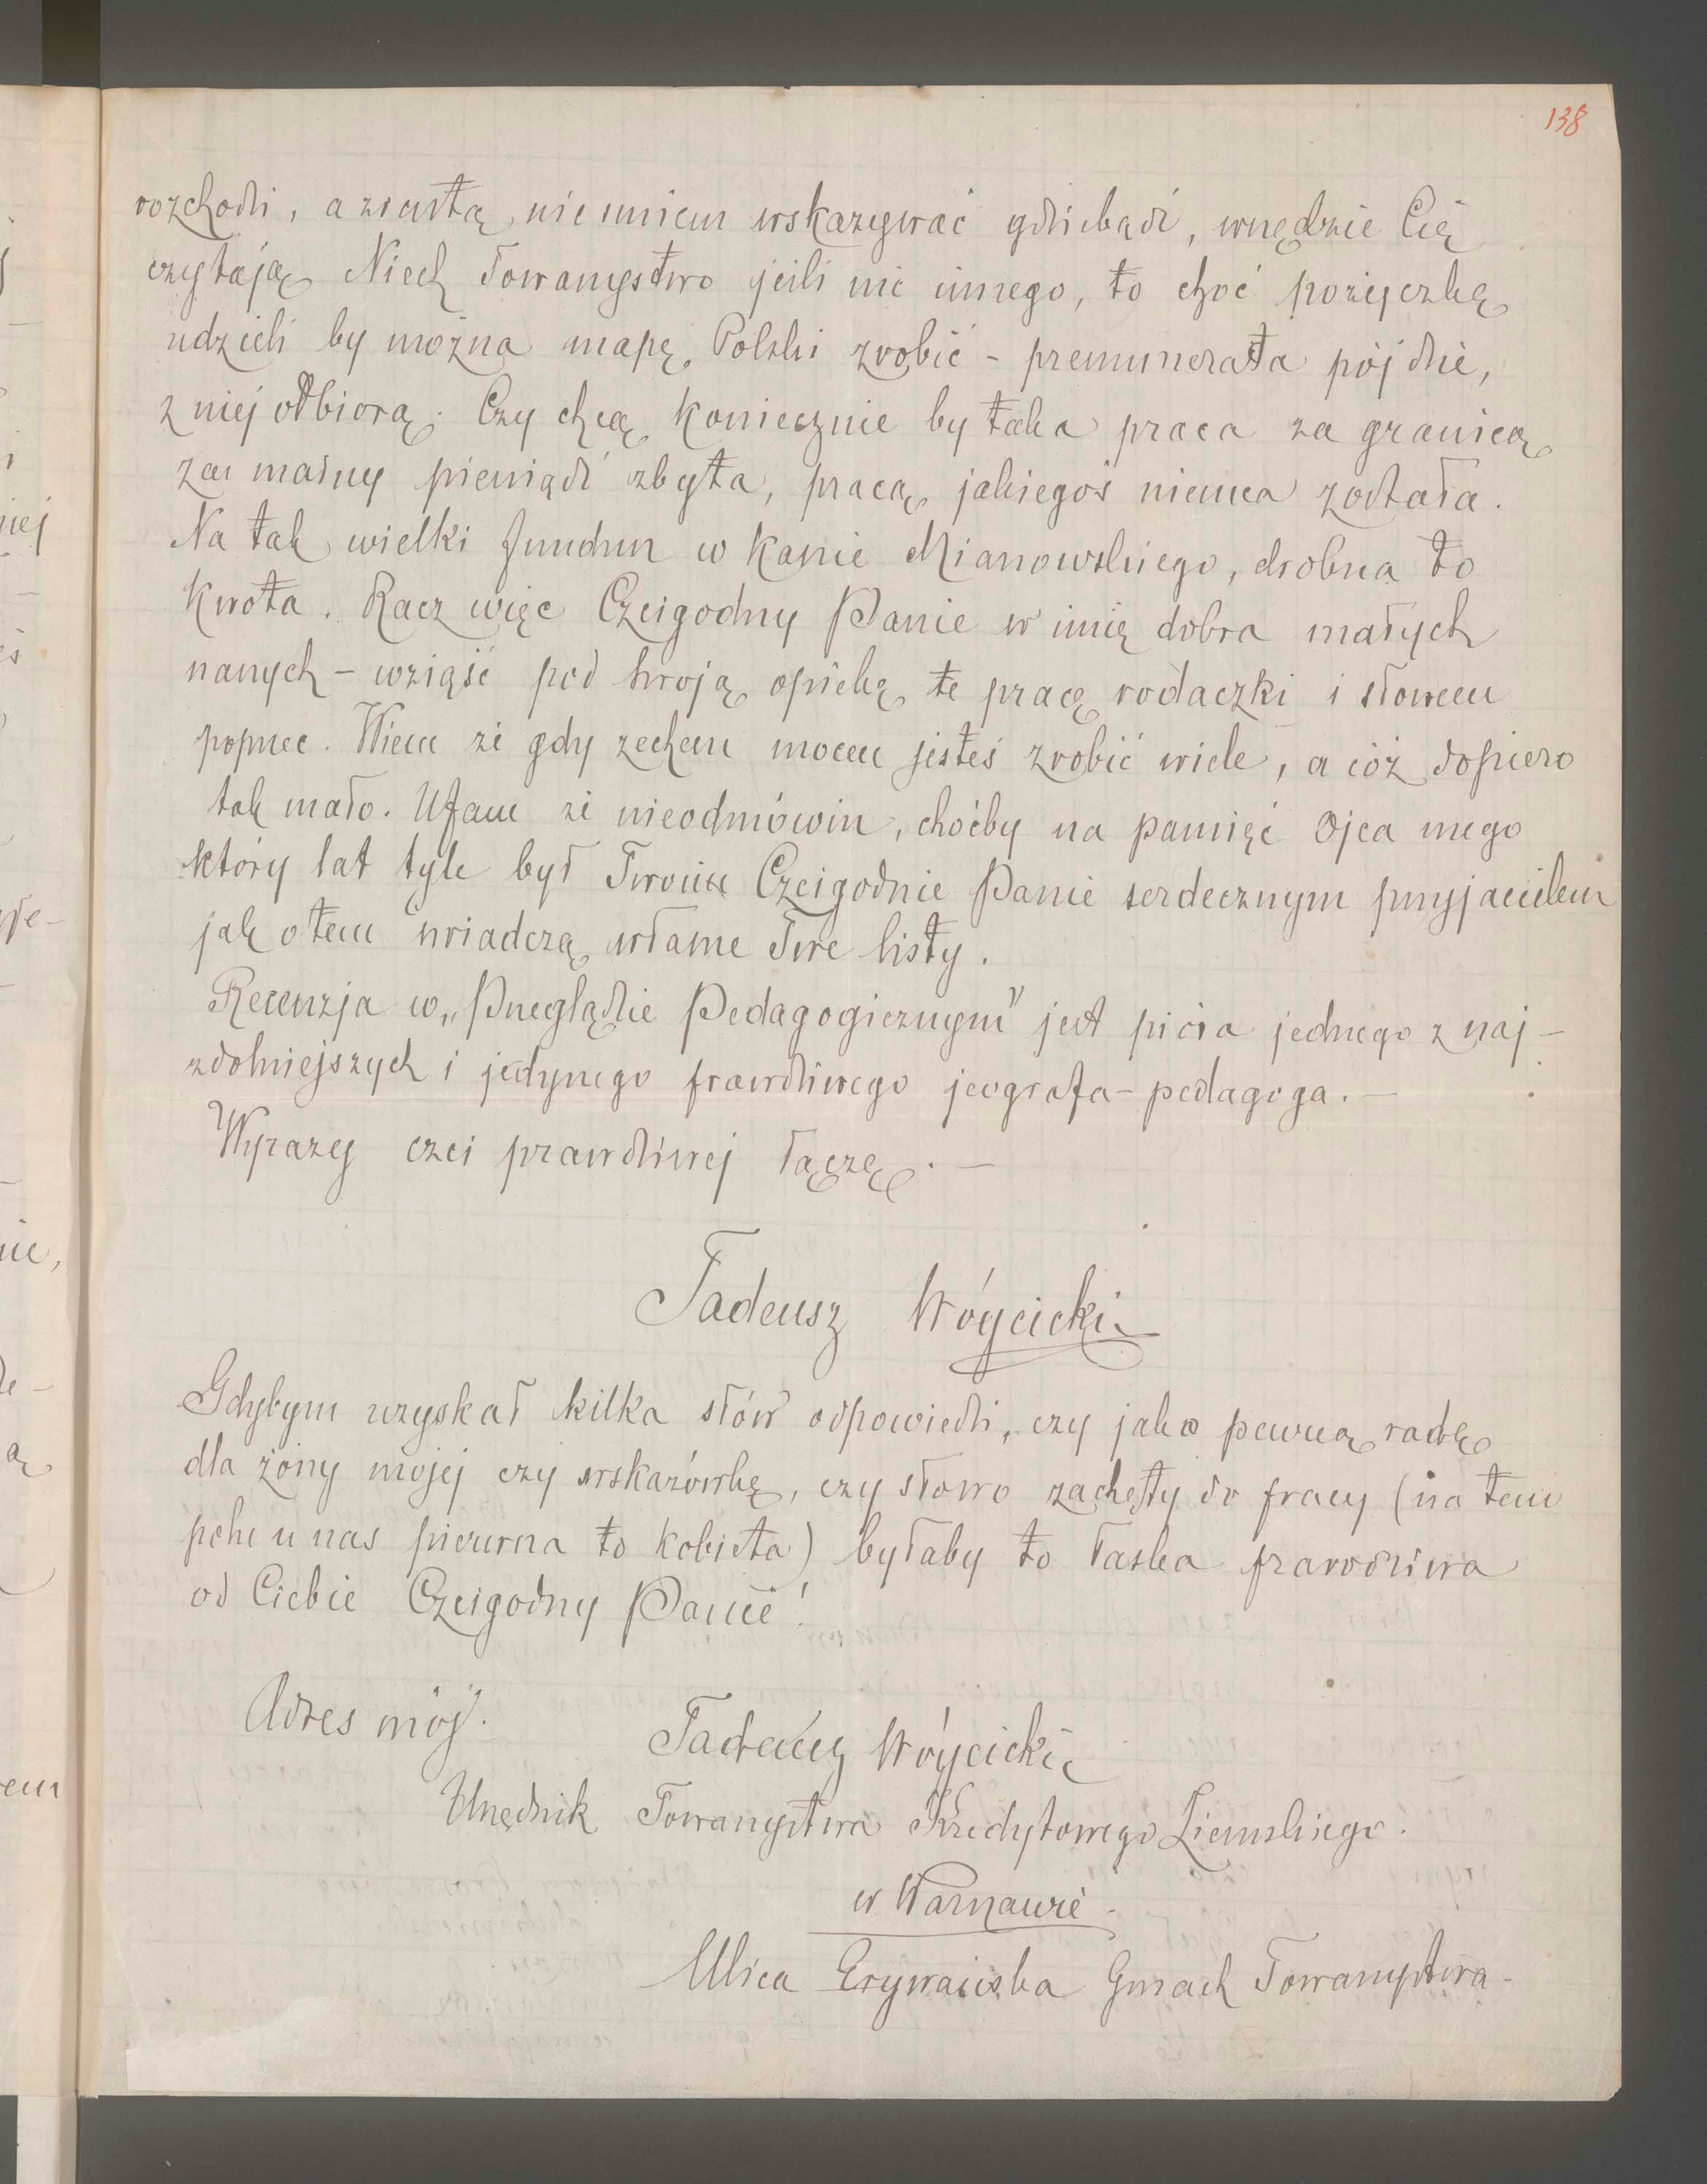 138
rozchodzi, a zresztą nieśmiem wskazywać gdziebądź, wszędzie Cię
czytają. Niech Towarzystwo jeśli nic innego, to choć pożyczkę
udzieli by można mapę Polski zrobić – prenumerata pójdzie,
z niej odbiorą. Czy chcą koniecznie by taka praca za granicą
za marny pieniądz zbyta, pracą jakiegoś niemca została.
Na tak wielki fundusz w kasie Mianowskiego, drobna to
kwota. Racz więc Czcigodny Panie w imię dobra małych
naszych – wziąść pod swoją opiekę tę pracę rodaczki i słowem
poprzeć. Wiem że gdy zechcesz mocen jesteś zrobić wiele, a cóż dopiero
tak mało. Ufam że nieodmówisz, choćby na pamięć Ojca mego
który lat tyle był Twoim Czcigodnie Panie serdecznym przyjacielem
jak o tem świadczą własne Twe listy.
Recenzja w „Przeglądzie Pedagogicznym" jest pióra jednego z naj-
zdolniejszych i jedynego prawdziwego jeografa-pedagoga. –
Wyrazy czci prawdziwej łączę. –
Tadeusz Wóycicki
Gdybym uzyskał kilka słów odpowiedzi, czy jako pewną radę
dla żony mojej czy wskazówkę, czy słowo zachęty do pracy (na tem
polu u nas pierwsza to kobieta) byłaby to łaska prawdziwa
od Ciebie Czcigodny Panie!
Adres mój.
Tadeusz Wóycicki
Urzędnik Towarzystwa Kredytowego Ziemskiego.
w Warszawie.
Ulica Erywańska Gmach Towarzystwa.